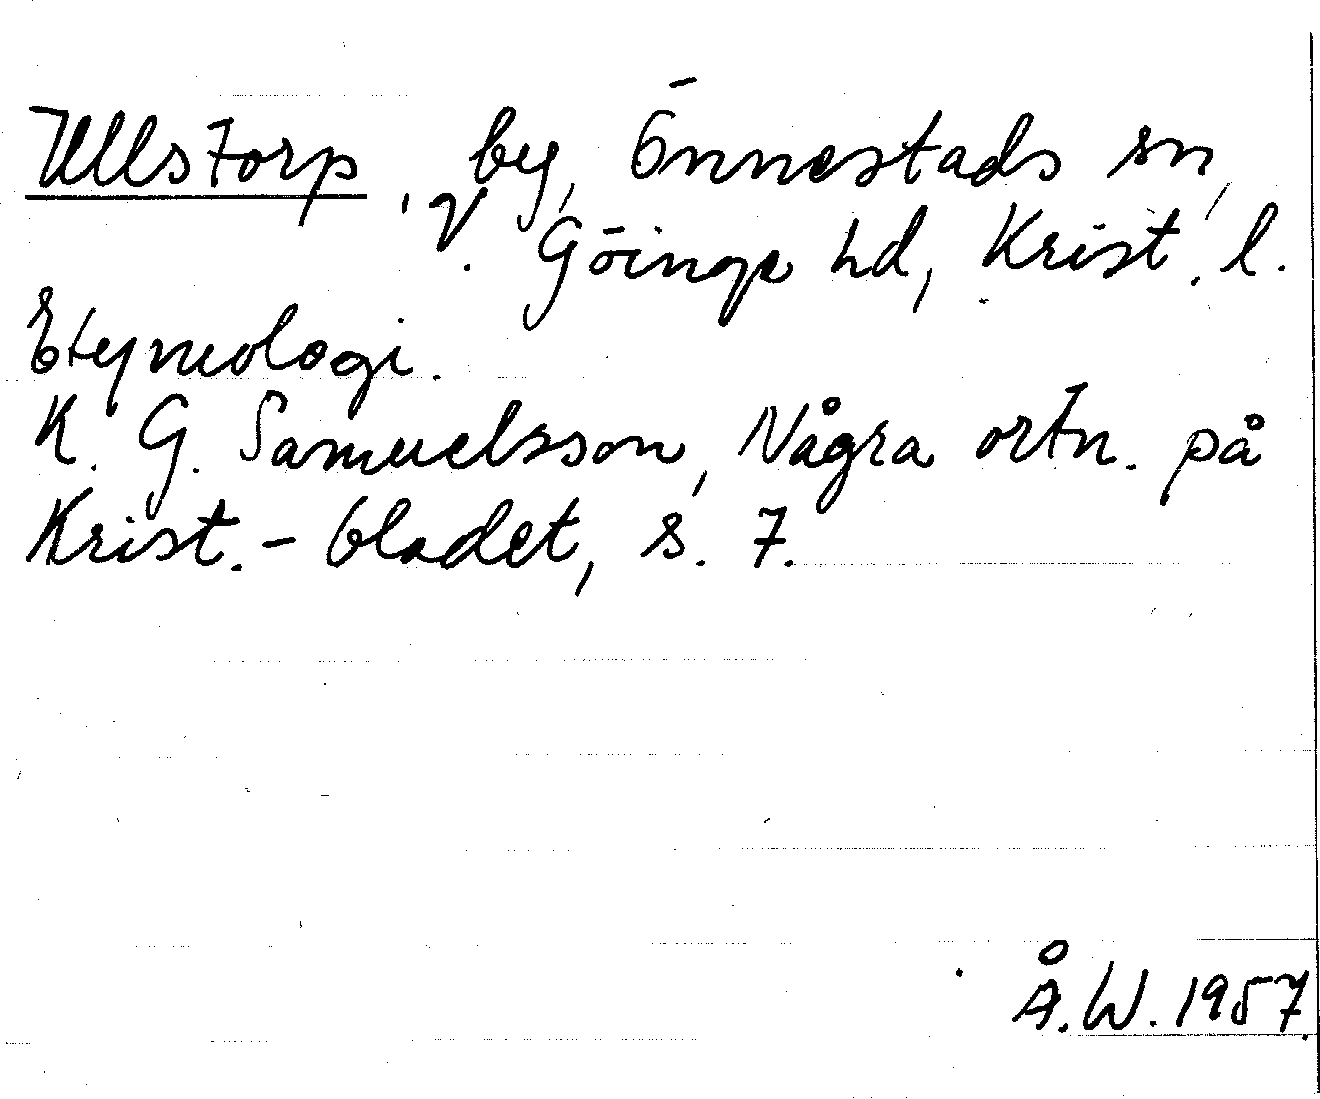 Ullstorp, by, Önnestads sn,
V. Göinge hd, Krist. l.
Etymologi.
K. G. Samuelsson, Några ortn. på
Krist.-bladet, s. 7.
Å.W. 1957.